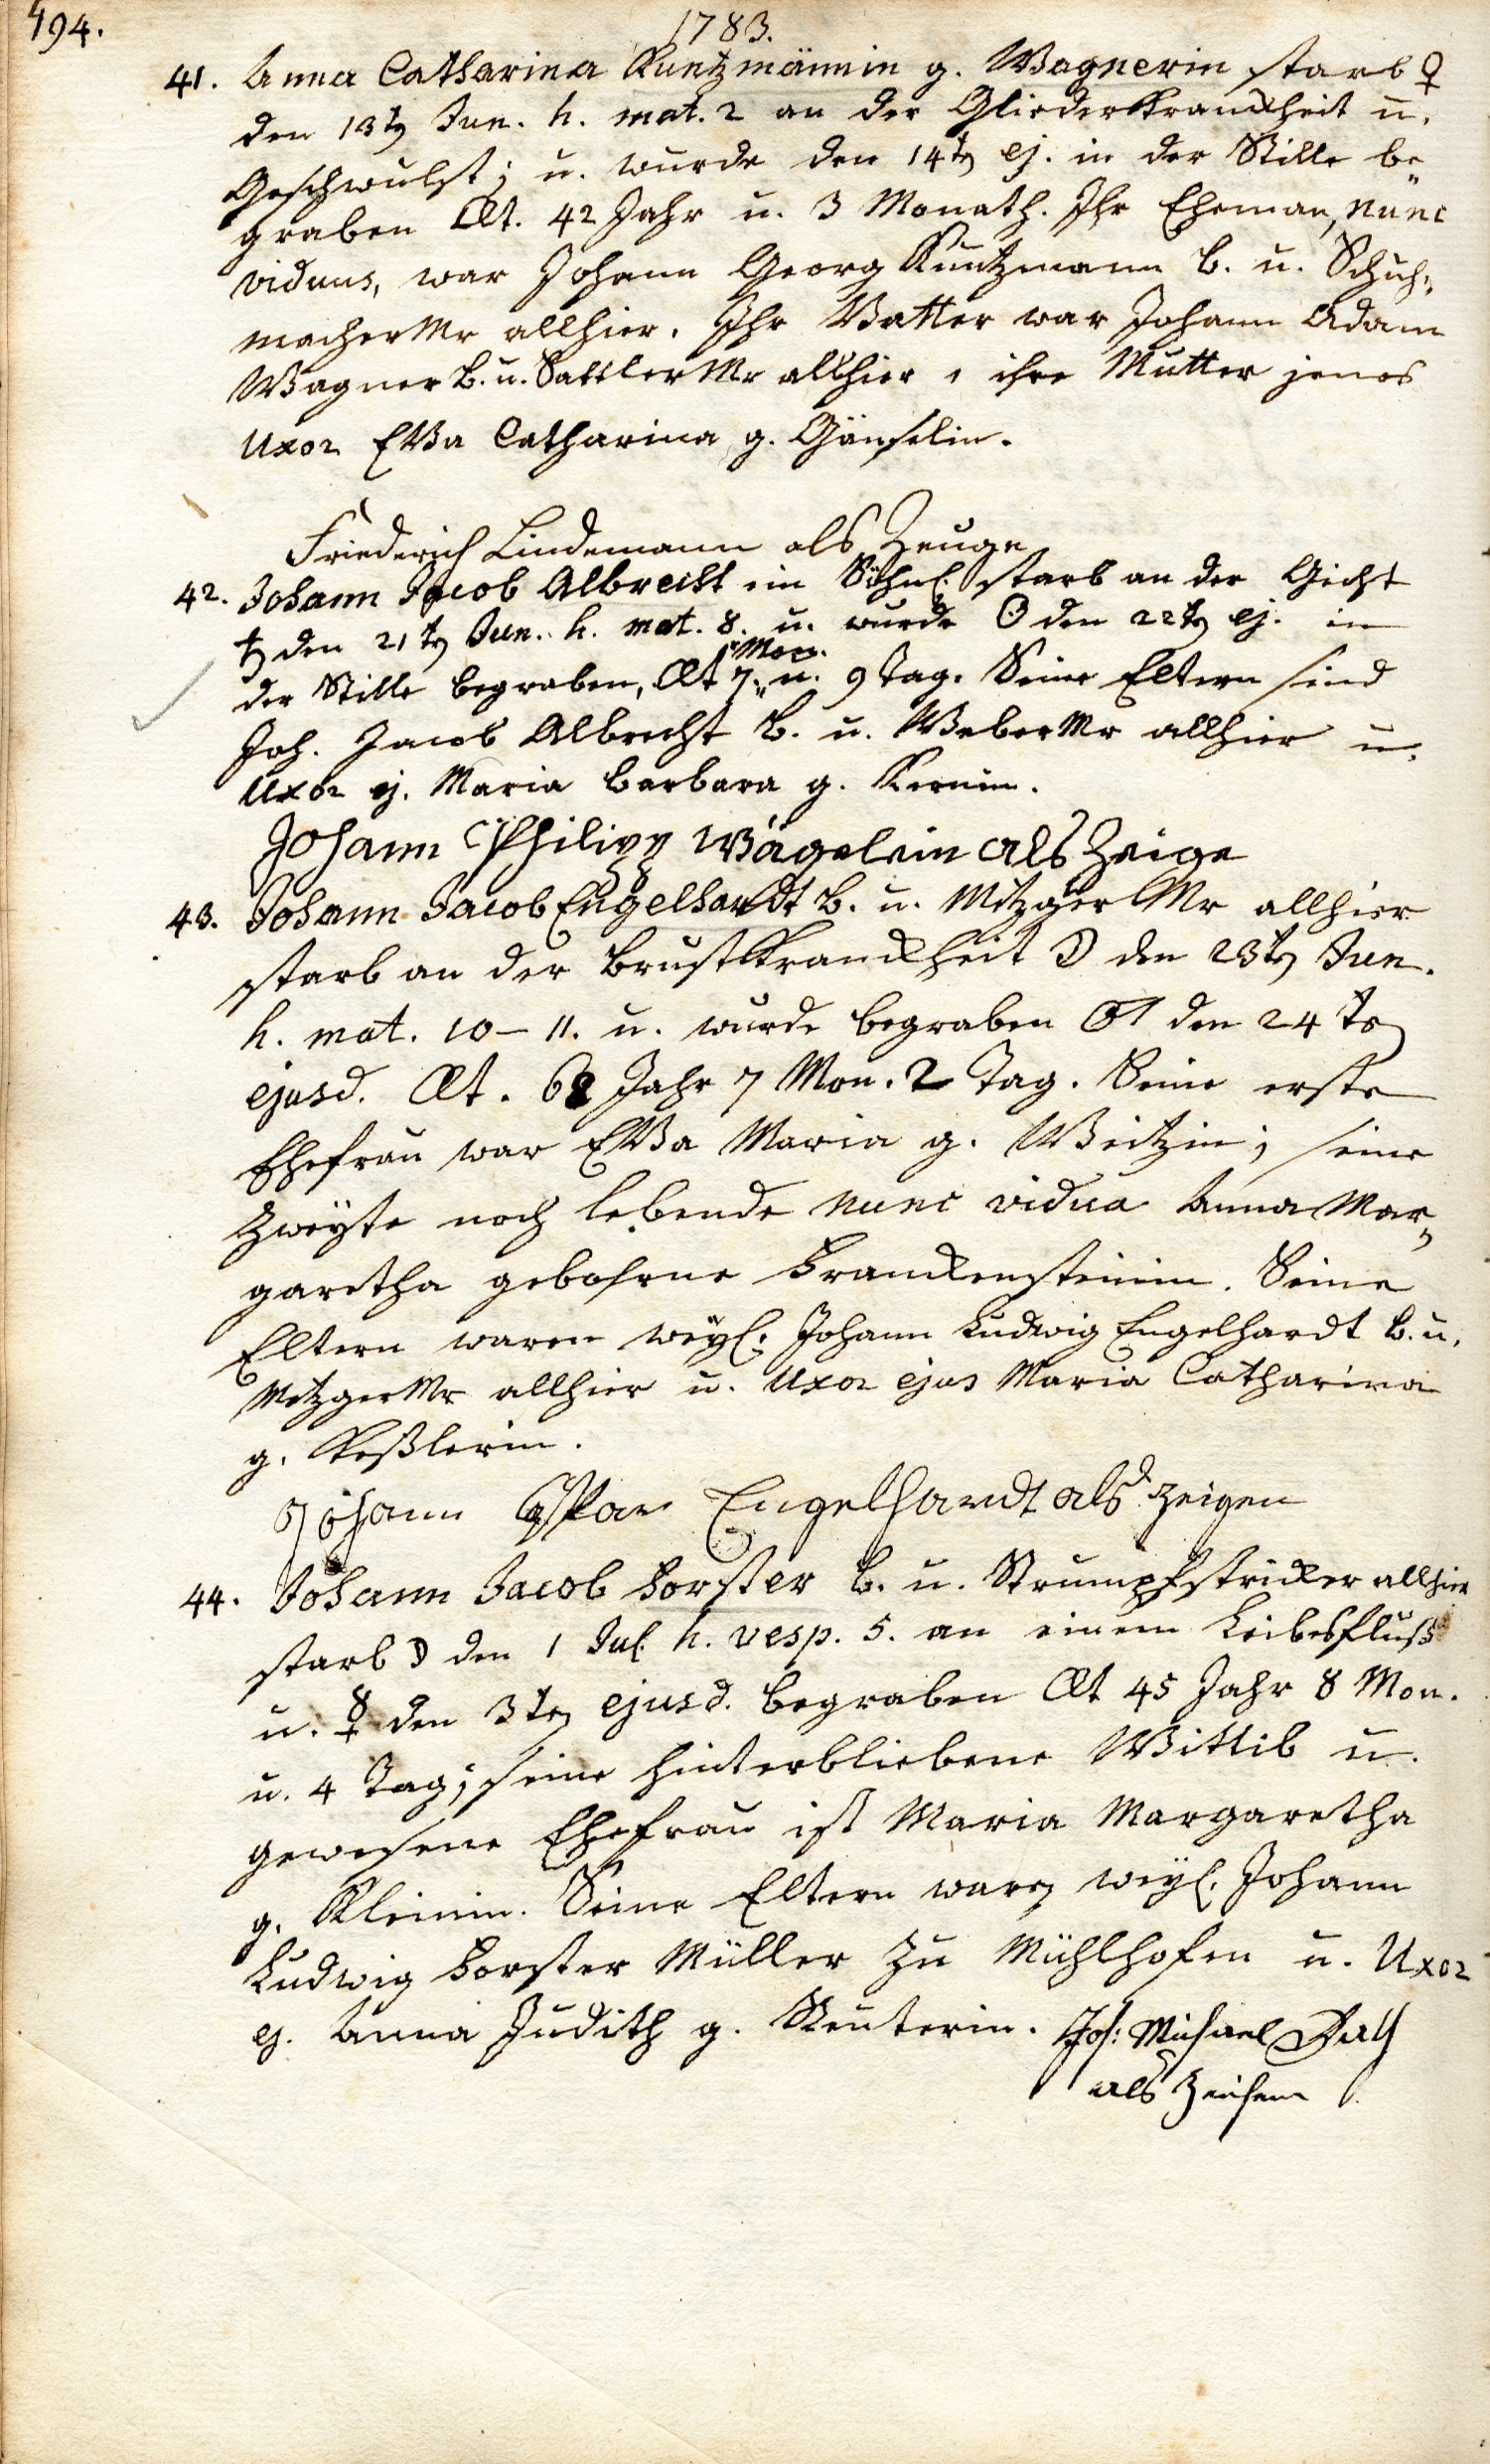 494.
1783.
41. Anna Catharina Kuntzmännin g. Wagnerin starb ♀
den 13ten Jun. h. mat. 2 an der Gliederkranckheit u.
Geschwulst; u. wurde den 14ten ej. in der Stille be„
graben Æt. 42 Jahr u. 3 Monath. Ihr Eheman, nunc
viduus, war Johann Georg Kuntzmann B. u. Schuh„
macher Mr allhier. Ihr Vatter war Johann Adam
Wagner B. u. Sattler Mr allhier, ihre Mutter jenes
Uxor Eva Catharina g. Gänselin.
Friederich Lindemann als Zeuge
42. Johann Jacob Albrecht ein Söhnl. starb an der Gicht
♄ den 21ten Jun. h. mat. 8. u. wurde ☉ den 22ten ej. in
der Stille begraben, Æt 7 Mon. u. 9 Tag. Seine Eltern sind
Joh. Jacob Albrecht B. u. Weber Mr allhier u.
Uxor ej. Maria Barbara g. Kernin.
Johann Philipp Wägelein als Zeige
43. Johann Jacob Engelhardt B. u. Metzger Mr allhier
starb an der Brustkranckheit ☽ den 23ten Jun.
h. mat. 10–11. u. wurde begraben ♂ den 24ten
ejusd. Æt. 68 Jahr 7 Mon. 2 Tag. Seine erste
Ehefrau war Eva Maria g. Weitzin; seine
Zweyte noch lebende nunc vidua Anna Mar„
garetha gebohrne Franckensteinin. Seine
Eltern waren weyl. Johann Ludwig Engelhardt B. u.
Metzger Mr allhier u. Uxor ejus Maria Catharina
g. Keßlerin.
Johann Casper Engelhardt als Zeigen
44. Johann Jacob Forster B. u. Strumpfstricker allhier
starb ☽ den 1 Jul. h. vesp. 5. an einem Leibesfluß
u. den 3ten ejusd. begraben Æt 45 Jahr 8 Mon.
u. 4 Tag; seine hinterbliebene Wittib u.
gewesene Ehefrau ist Maria Margaretha
g. Kleinin. Seine Eltern waren weyl. Johann
Ludwig Forster Müller zu Mühlhofen u. Uxor
ej. Anna Judith g. Reuterin. Joh: Michael
als